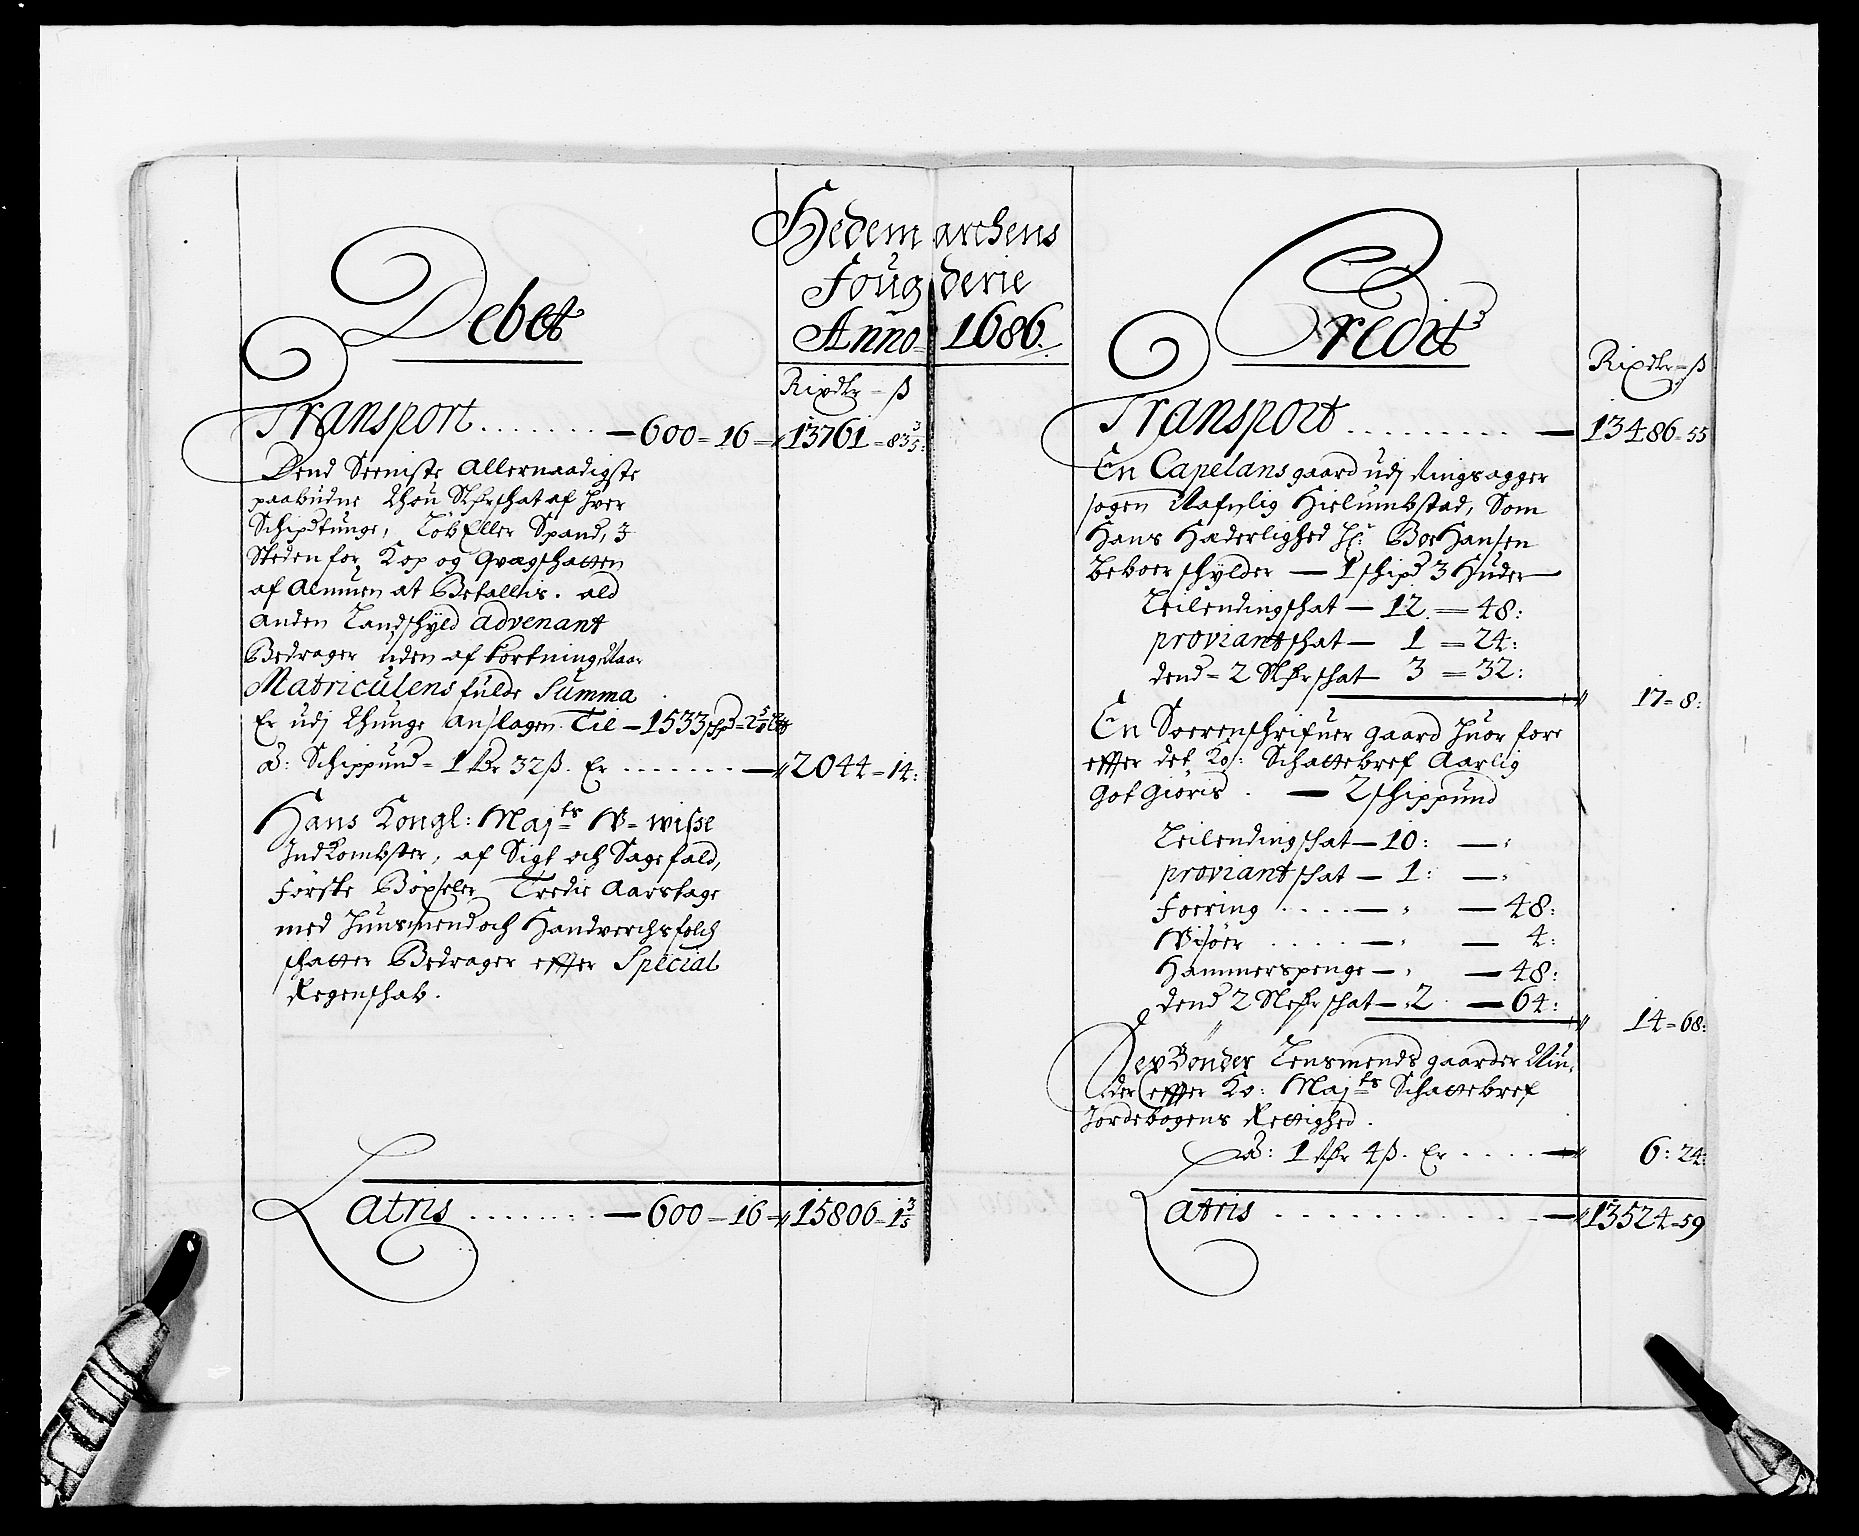 Hedemarchens
Fougderie
Anno 1686.
Debet
Rixdlr - ß
Transport . . . . . . . — 600 = 16 — 13761 = 83 3/5:
Dend Seeniste Allernaadigste
paabudne Rdlr schat af hver
Schipdtunge, Löb Eller Spand, I
Steden for Kop og Qvægschatten
af Almuen at Betallis. ald
anden Landschyld advenant
Bedrager uden afkortning Naar
Matriculens fulde Summa
Er udj thunge anslagen Til — 1533 schpd =
â: Schippund = 1 Rdr 32ß. Er . . . . . . . — 2044 = 14:
Hans Kongl: Majts W= wisse
Indkombster, af Sigt och Sagefald,
Förste Böxseler Tredie Aarstage
med Huusmend och Handverchsfolch
schatter Bedrager effter Special
Regenschab.
Latris . . . . . . . — 600 = 16 = 15806 = 1 3/5
Credit
Rixdlr = ß
Transport . . . . . . . . . — 13486 = 55
En Capelans gaard udj Ringsagger
sogen Nafnlig Hielumbstad, Som
Hans Hæderlighed Hr: Boe Hansen
beboer schylder — 1 schipd 3 Huder —
Leilendingschat — 12 = 48:
proviantschat — 1 = 24:
dend = 2 Rdlr schat — 3 = 32:
17 = 8:
En Soerenschrifuer gaard huor fore
effter det Ko: Schattebref Aarlig
Got giöris . — 2 schippund
Leilendingschat — 10: —
proviantschat — 1: —
Foering . . . . — — 48:
Wisöer . . . . — — 4:
Hammerspenge — — 48:
dend 2 Rdlr schat — 2 — 64:
14 = 68:
Sex Bönder Lensmends gaarder
effter Ko: Majts Schattebref
Jordebogens Rettighed.
â: 1 Rdr 4ß. Er . . . . — 6: 24:
Latris . . . . . . . . . . . . — 13524 = 59